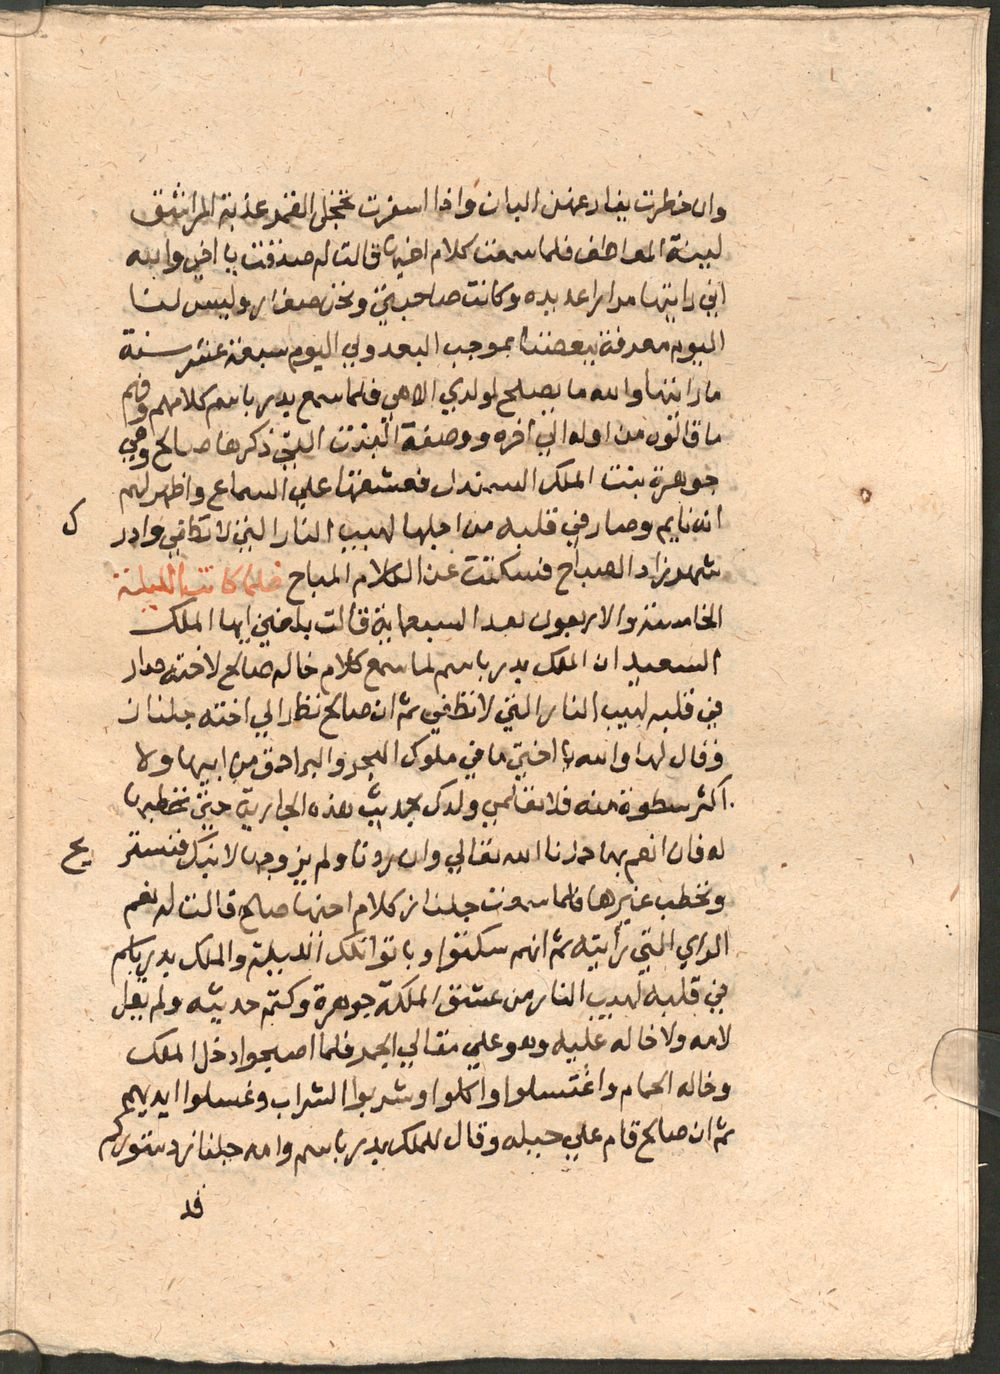 وان خطرت بغار غصن البان واذا اسفرت تخجل القمر عذبة المراشق
لينة المعاطف فلما سمعت كلام اخيها قالت له صدقت يا اخي والله
اني رايتها مرارا عديده وكانت صاحبتي ونحن صغار وليس لنا
اليوم معرفة ببعضنا بموجب البعد ولي اليوم سبعة عشر سنة
ما رايتها والله ما يصلح لولدي الا هي فلما سمع بدر باسم كلامهم وفهم
ما قالوه من اوله الي اخره ووصفة البنت التي ذكرها صالح وهي
جوهرة بنت الملك السمندل فعشقها علي السماع واظهر لهم
انه نايم وصار في قلبه من اجلها لهيب النار التي لا تطافي وادرك
شهرزاد الصباح فسكتت عن الكلام المباح فلما كانت الليلة
الخامسة والاربعون بعد السبعماية قالت بلغني ايها الملك
السعيد ان الملك بدر باسم لما سمع كلام خاله صالح لاخته صار
في قلبه لهيب النار التي لا تطفي ثم ان صالح نظر الي اخته جلناز
وقال لها والله يا اختي ما في ملوك البحر والبر احق من ابيها ولا
اكثر سطوة منه فلا تقالمي ولدك بحديث هذه الجارية حتي نخطبها
له فان انعم بها حمدنا الله تعالي وان ردنا ولم يزوجها لابنك فنستريح
ونخطب غيرها فلما سمعت جلناز كلام اخيها صالح قالت له نعم
الراي التي رأيته ثم انهم سكتوا وباتوا تلك الليلة والملك بدر باسم
في قلبه لهيب النار من عشق الملكة جوهرة وكتم حديثه ولم يقل
لامه ولا خاله عليه وهو علي مقالي الجمر فلما اصبحوا دخل الملك
وخاله الحمام واغتسلوا واكلوا وشربوا الشراب وغسلوا ايديهم
ثم ان صالح قام علي حيله وقال للملك بدر باسم وامه جلناز دستوركم
قد